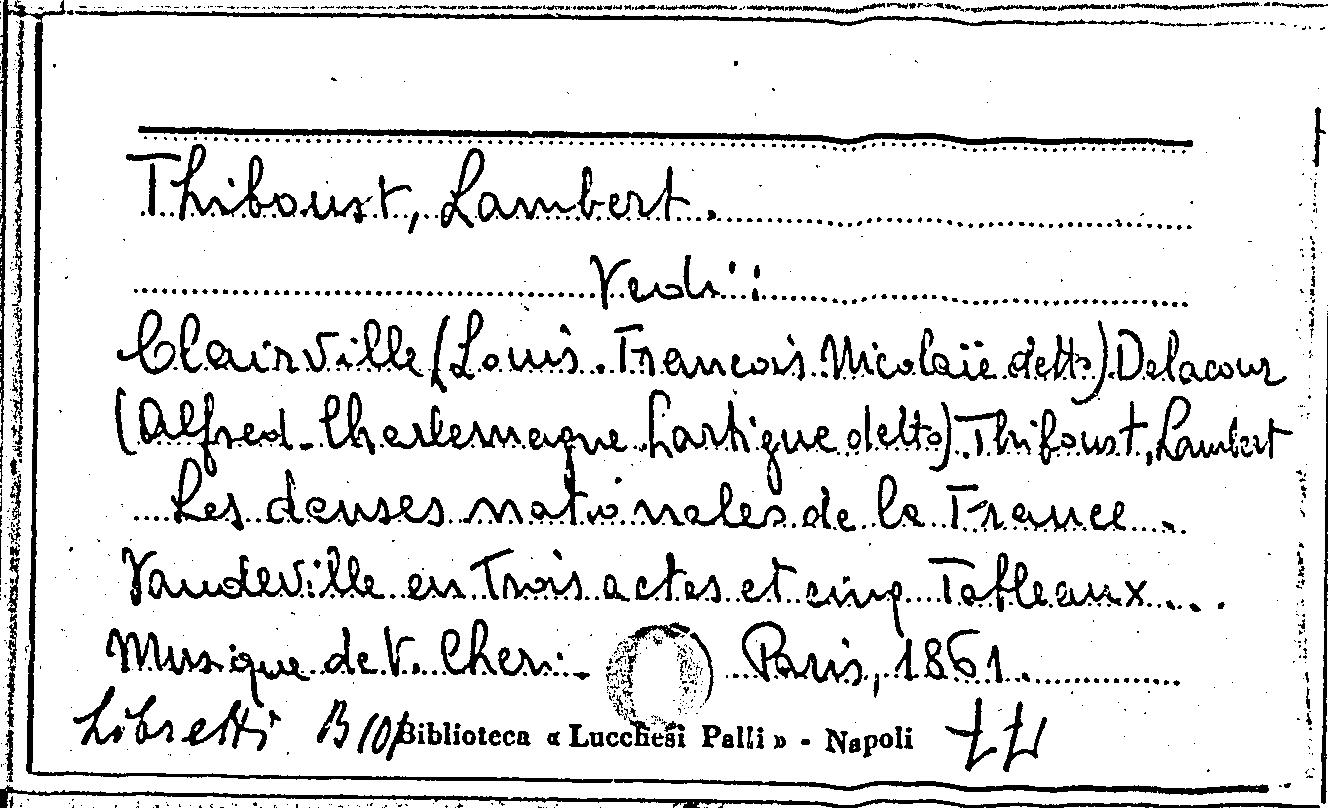 Thiboust, Lambert.
Vedi:
Clairville (Louis. Francois Nicolaïe detto) Delacour
(Alfred-Charlemagne Lartigue detto). Thiboust, Lambert
Les danses nationales de la France..
Vaudeville en trois actes et cinq Tableaux...
Musique de V. Cheri. Paris, 1861.
Libretti B 10/ Biblioteca « Lucchesi Palli » - Napoli